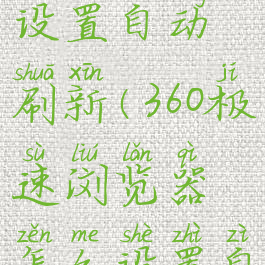 设置自动
shuā xīn jí
刷新(360极
sù liú lǎn qì
速浏览器
zěn me shè zhì zì
怎么设置自